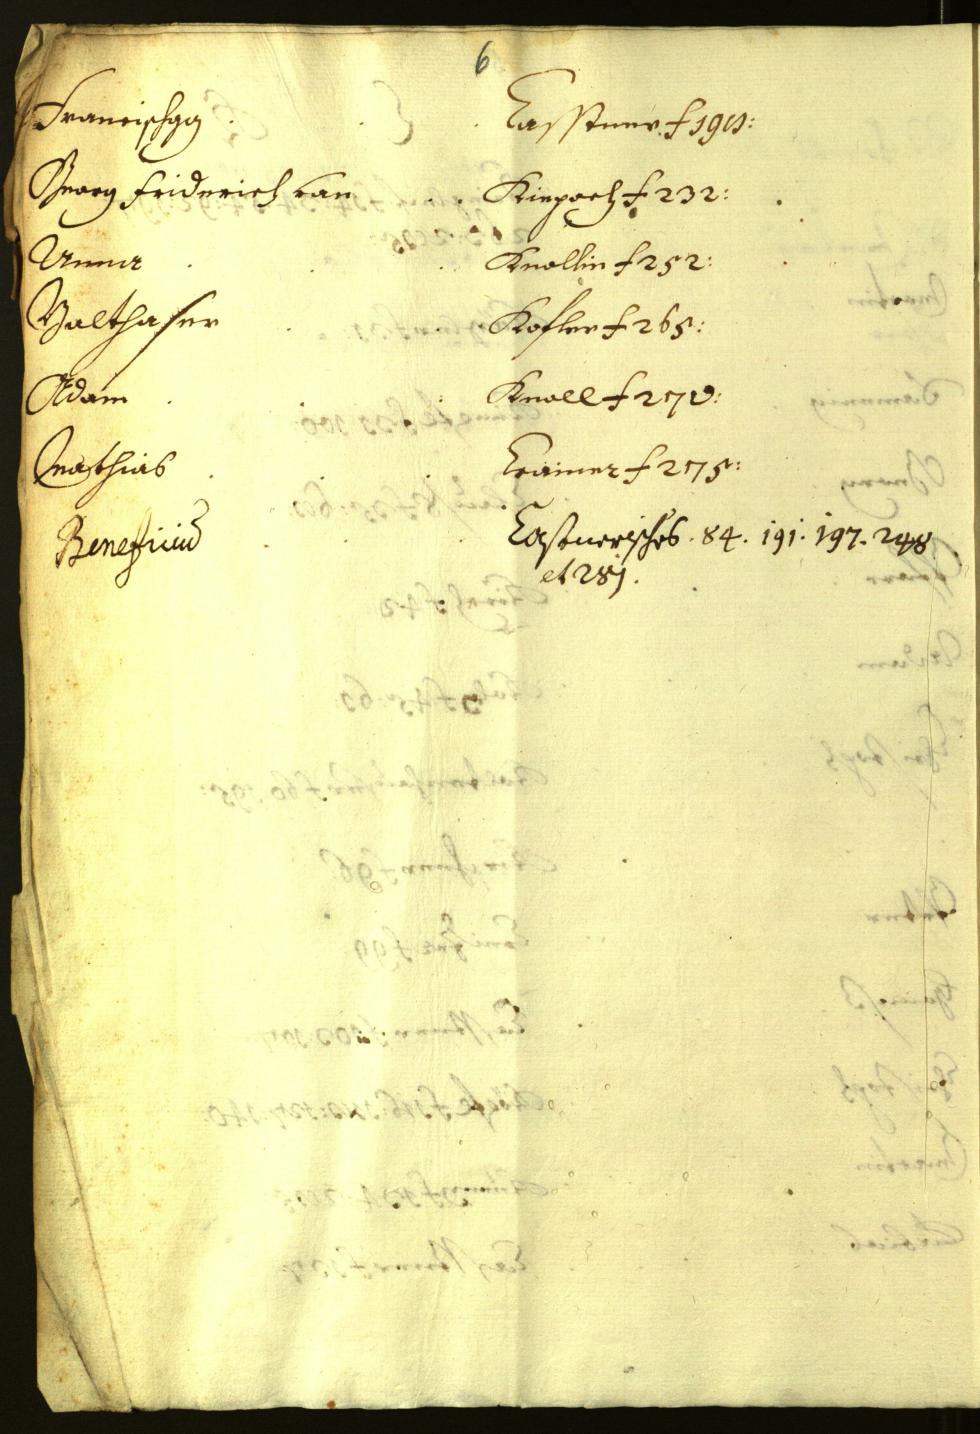 6
Francischgg Casstner f 190:
Georg Friderich van Kiepach f 232:
Anna Knollin f 252:
Balthaser Kofler f 265:
Adam Knoll f 270:
Mathias Crainer f 275:
Beneficiu͠ Castnerisches . 84 . 191 . 197 . 248
et 281 .